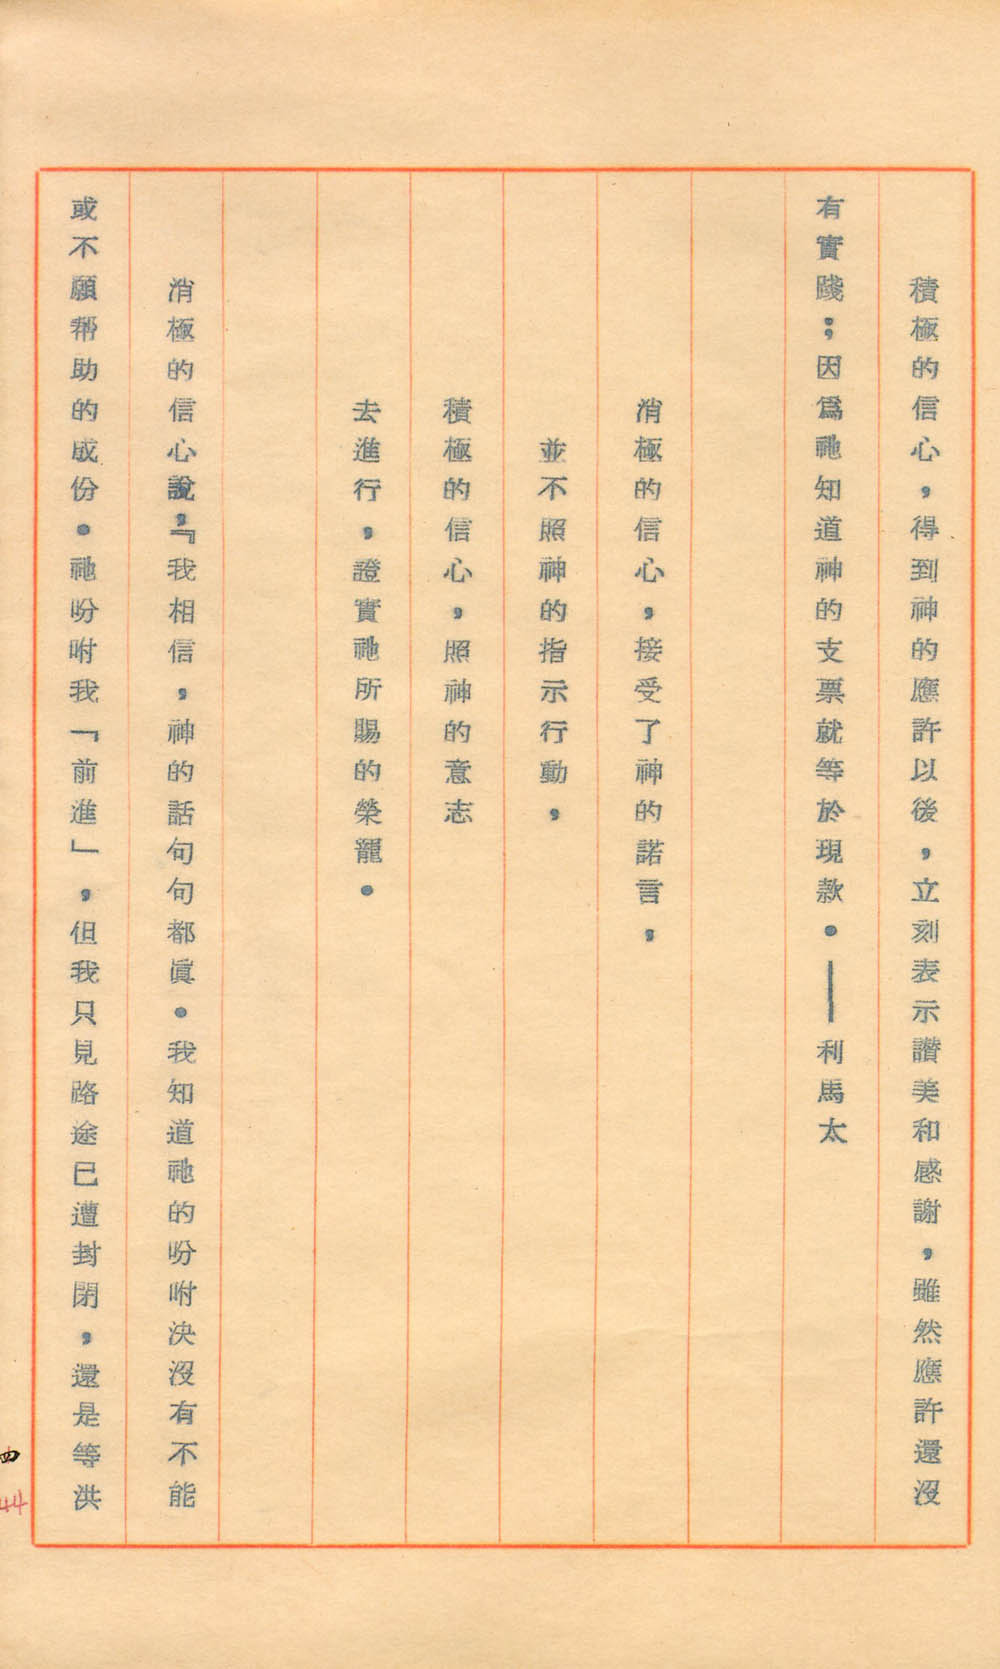 積極的信心，得到神的應許以後，立刻表示讚美和感謝，雖然應許還沒
有實踐；因爲祂知道神的支票就等於現款。——利馬太
消極的信心，接受了神的諾言，
並不照神的指示行動，
積極的信心，照神的意志
去進行，證實祂所賜的榮寵。
消極的信心說，『我相信，神的話句句都眞。我知道祂的吩咐決沒有不能
或不願帮助的成份。祂吩咐我「前進」，但我只見路途已遭封閉，還是等洪
四
44